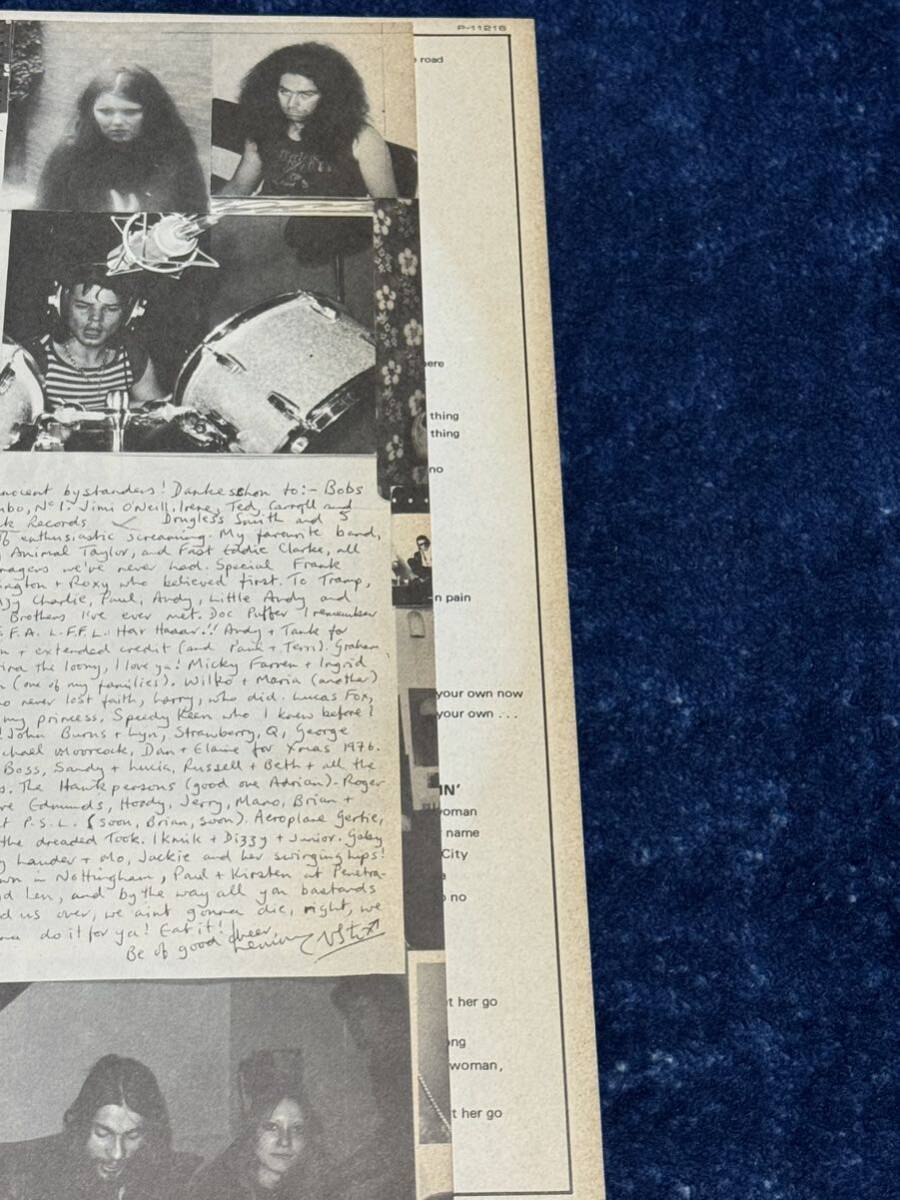 P-11216
road
ere
thing
thing
no
nocent bystanders! Dankeschon to:- Bobs
mbo, No 1. Jimi O'Neill, Irene, Ted Carroll and
k Records Drugless Smith and 5
of enthusiastic screaming. My favourite band,
Animal Taylor, and Fast Eddie Clarke, all
nagers we've never had. Special Frank
ington + Roxy who believed first. To Tramp,
Charlie, Paul, Andy, Little Andy and
Brothers I've ever met. Doc Puffer I remember
F.A. L.F.F.L. Har Haaar!! Andy + Tank for
n + extended credit (and Paul + Terri). Graham,
the loony, I love ya! Micky Farren + Ingrid
(one of my families). Wilko + Maria (another)
o never lost faith, Larry, who did. Lucas Fox,
my princess, Speedy Keen who I knew before I
! John Burns + Lyn, Strawberry, Q, George
chael Moorcock, Dan + Elaine for Xmas 1976.
Boss, Sandy + Lucia, Russell + Beth + all the
s. The Hawkpersons (good one Adrian). Roger
ve Edmunds, Hoody, Jerry, Mano, Brian +
t P.S.L. (soon, Brian, soon). Aeroplane Gertie,
the dreaded Took. Iknik + Dizzy + Junior. Gaby
y Lauder + Mo, Jackie and her swinging hips!
wn in Nottingham, Paul + Kirsten at Penetra-
d Len, and by the way all you bastards
d us over, we aint gonna die, right, we
na do it for ya! Eat it!
Be of good cheer,
n pain
your own now
your own ...
IN'
woman
name
City
no
t her go
ong
woman,
t her go